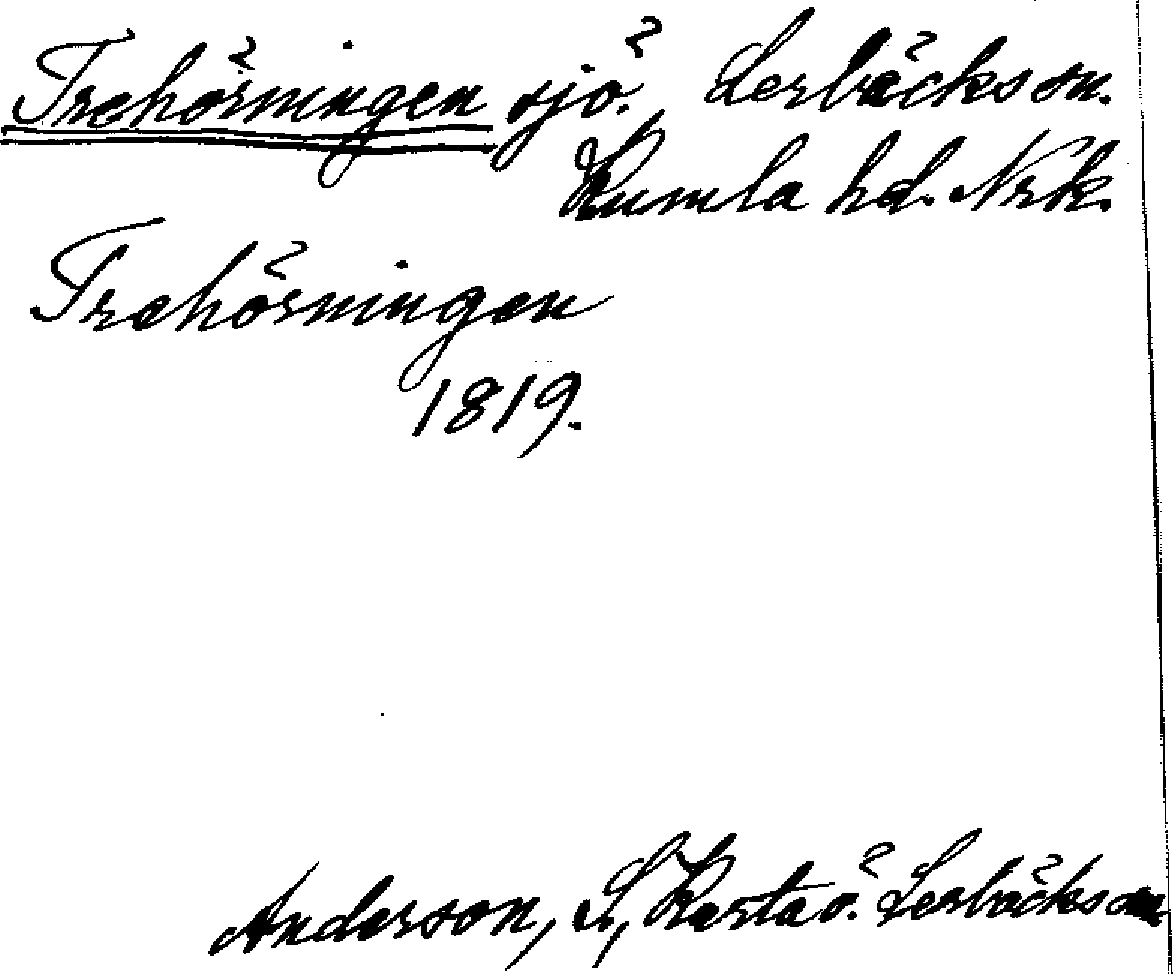 Trehörningen sjö. Lerbäcks sn.
Kumla hd. Nrk.
Trehörningen
1819.
Anderson, L, Karta ö. Lerbäcks sn